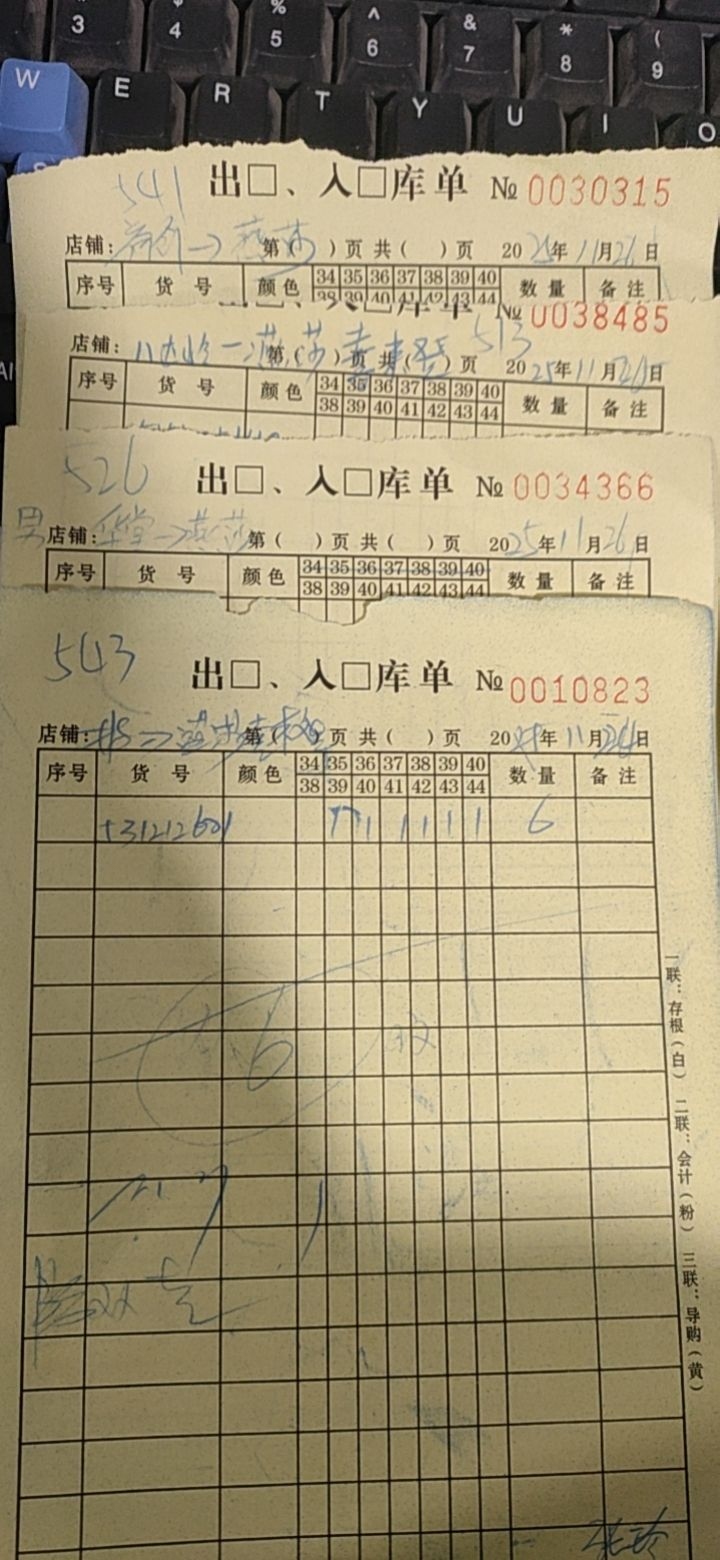 3 $ 4 % 5 ^ 6 & 7 * 8 ( 9
W E R T Y U I O
541
出□、入□库单 № 0030315
店铺: → 燕莎 第( )页 共( )页 2025年11月26日
序号 货号 颜色 34 35 36 37 38 39 40 数量 备注
38 39 40 41 42 43 44
№ 0038485
513
店铺: 八达岭 — 燕莎 第( )页 共( )页 2025年11月26日
序号 货号 颜色 34 35 36 37 38 39 40 数量 备注
38 39 40 41 42 43 44
526
出□、入□库单 № 0034366
男 店铺: → 燕莎 第( )页 共( )页 2025年11月26日
序号 货号 颜色 34 35 36 37 38 39 40 数量 备注
38 39 40 41 42 43 44
543
出□、入□库单 № 0010823
店铺: → 燕莎 第( )页 共( )页 20 年11月26日
序号 货号 颜色 34 35 36 37 38 39 40 数量 备注
38 39 40 41 42 43 44
531212601 1 1 1 1 1 1 6
6
一联:存根(白) 二联:会计(粉) 三联:导购(黄)